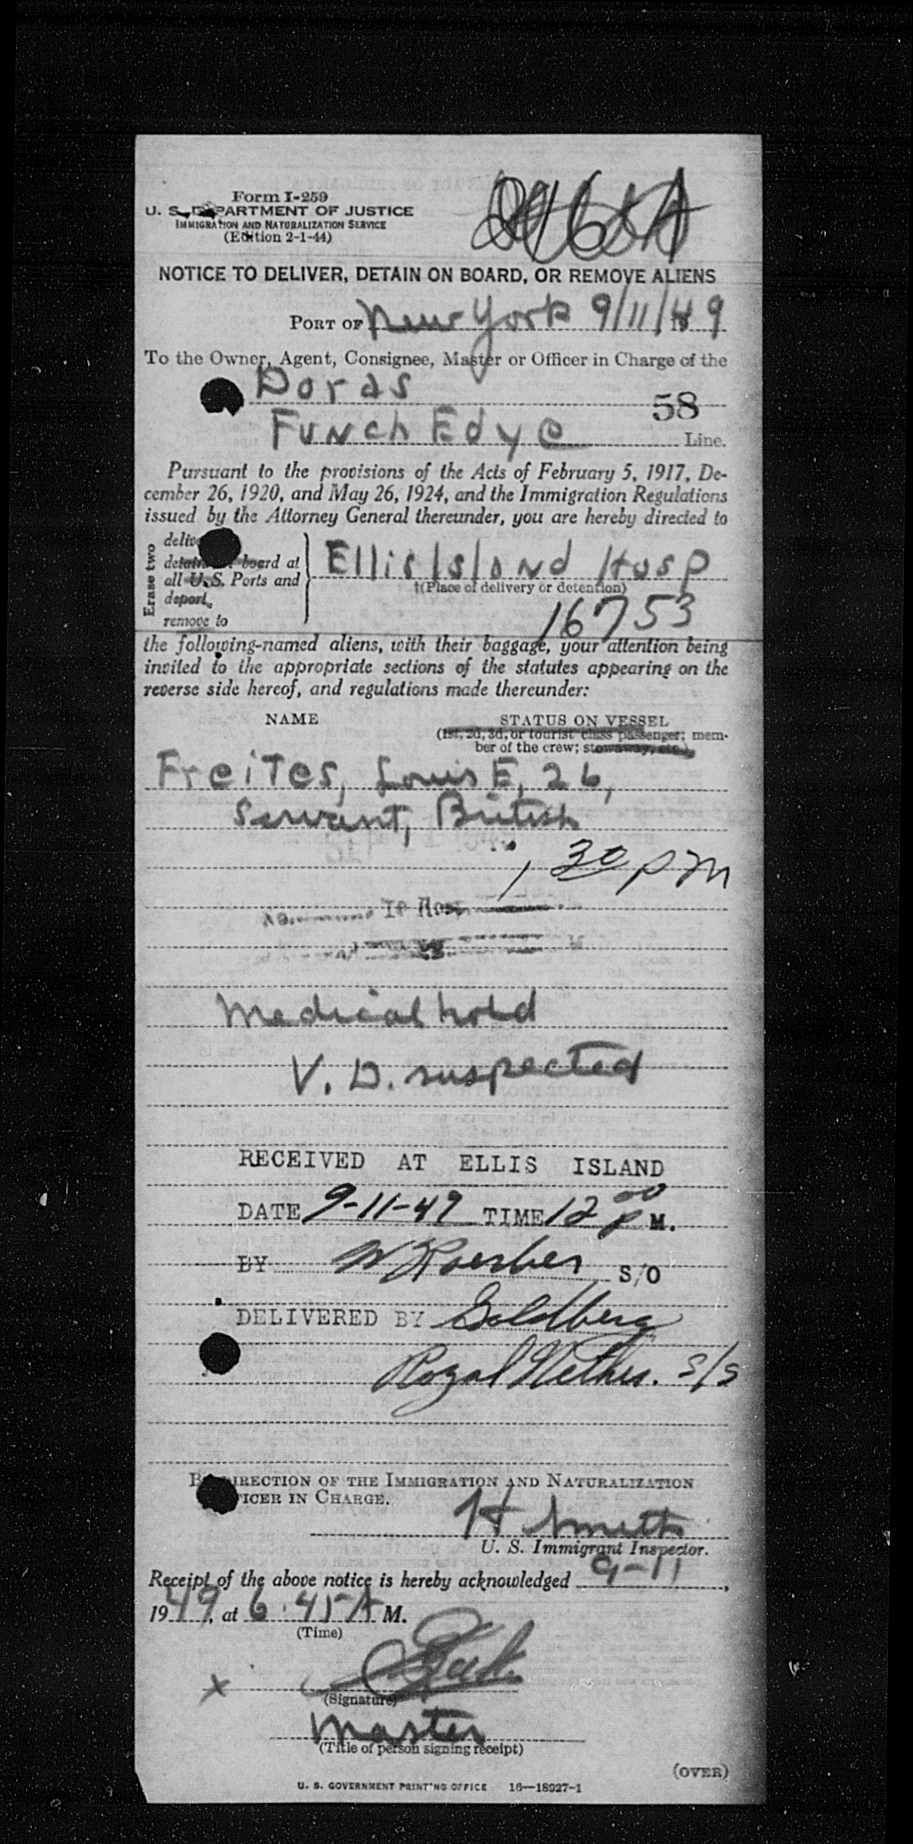 Form I-259
U. S. DEPARTMENT OF JUSTICE
IMMIGRATION AND NATURALIZATION SERVICE
(Edition 2-1-44)
NOTICE TO DELIVER, DETAIN ON BOARD, OR REMOVE ALIENS
PORT OF New York 9/11/49
To the Owner, Agent, Consignee, Master or Officer in Charge of the
Doras
58
Funch Edye Line.
Pursuant to the provisions of the Acts of February 5, 1917, De-
cember 26, 1920, and May 26, 1924, and the Immigration Regulations
issued by the Attorney General thereunder, you are hereby directed to
Erase two
board at
all U.S. Ports and
deport,
remove to
Ellis Island Hosp
(Place of delivery or detention)
16753
the following-named aliens, with their baggage, your attention being
invited to the appropriate sections of the statutes appearing on the
reverse side hereof, and regulations made thereunder:
NAME STATUS ON VESSEL
(1st, 2d, 3d, or tourist class passenger; mem-
ber of the crew; stowaway, etc.)
Freites, Louis E, 26,
Servant, British
1,30 pm
Medical hold
V. D. suspected
RECEIVED AT ELLIS ISLAND
DATE 9-11-49 TIME 12 00 P M.
BY S/O
DELIVERED BY Goldberg
Royal Nethes. S/S
DIRECTION OF THE IMMIGRATION AND NATURALIZATION
OFFICER IN CHARGE.
H Smith
U. S. Immigrant Inspector.
Receipt of the above notice is hereby acknowledged 9-11,
1949, at 6.45 A M.
(Time)
x
(Signature)
Master
(Title of person signing receipt)
(OVER)
U. S. GOVERNMENT PRINTING OFFICE 16—18927-1